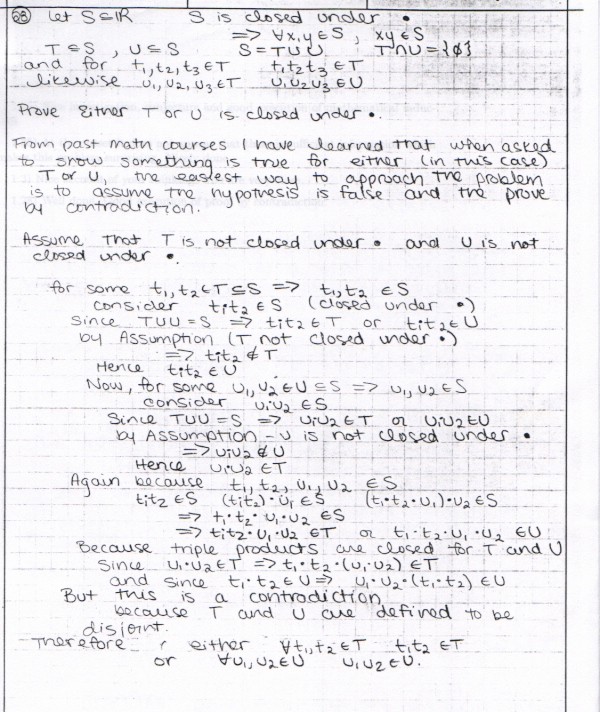 68 Let S⊆ℝ S is closed under •
⇒ ∀x,y∈S, xy∈S
T⊆S, U⊆S S=T∪U T∩U={∅}
and for t₁,t₂,t₃∈T t₁t₂t₃∈T
likewise u₁,u₂,u₃∈T u₁u₂u₃∈U
Prove Either T or U is closed under •.
From past math courses I have learned that when asked
to show something is true for either (in this case)
T or U, the easiest way to approach the problem
is to assume the hypothesis is false and the prove
by contradiction.
Assume that T is not closed under • and U is not
closed under •.
for some t₁,t₂∈T⊆S ⇒ t₁,t₂ ∈S
consider t₁t₂∈S (closed under •)
Since T∪U=S ⇒ t₁t₂∈T or t₁t₂∈U
by Assumption (T not closed under •)
⇒ t₁t₂∉T
Hence t₁t₂∈U
Now, for some u₁,u₂∈U⊆S ⇒ u₁,u₂∈S
consider u₁·u₂∈S
Since T∪U=S ⇒ u₁·u₂∈T or u₁·u₂∈U
by Assumption - U is not closed under •
⇒ u₁·u₂∉U
Hence u₁·u₂∈T
Again because t₁,t₂,u₁,u₂ ∈S
t₁t₂∈S (t₁t₂)·u₁∈S (t₁·t₂·u₁)·u₂∈S
⇒ t₁·t₂·u₁·u₂ ∈S
⇒ t₁t₂·u₁·u₂ ∈T or t₁·t₂·u₁·u₂ ∈U
Because triple products are closed for T and U
Since u₁·u₂∈T ⇒ t₁·t₂·(u₁·u₂) ∈T
and since t₁·t₂∈U ⇒ u₁·u₂·(t₁·t₂) ∈U
But this is a contradiction
because T and U are defined to be
disjoint.
Therefore, either ∀t₁,t₂∈T t₁t₂ ∈T
or ∀u₁,u₂∈U u₁u₂∈U.